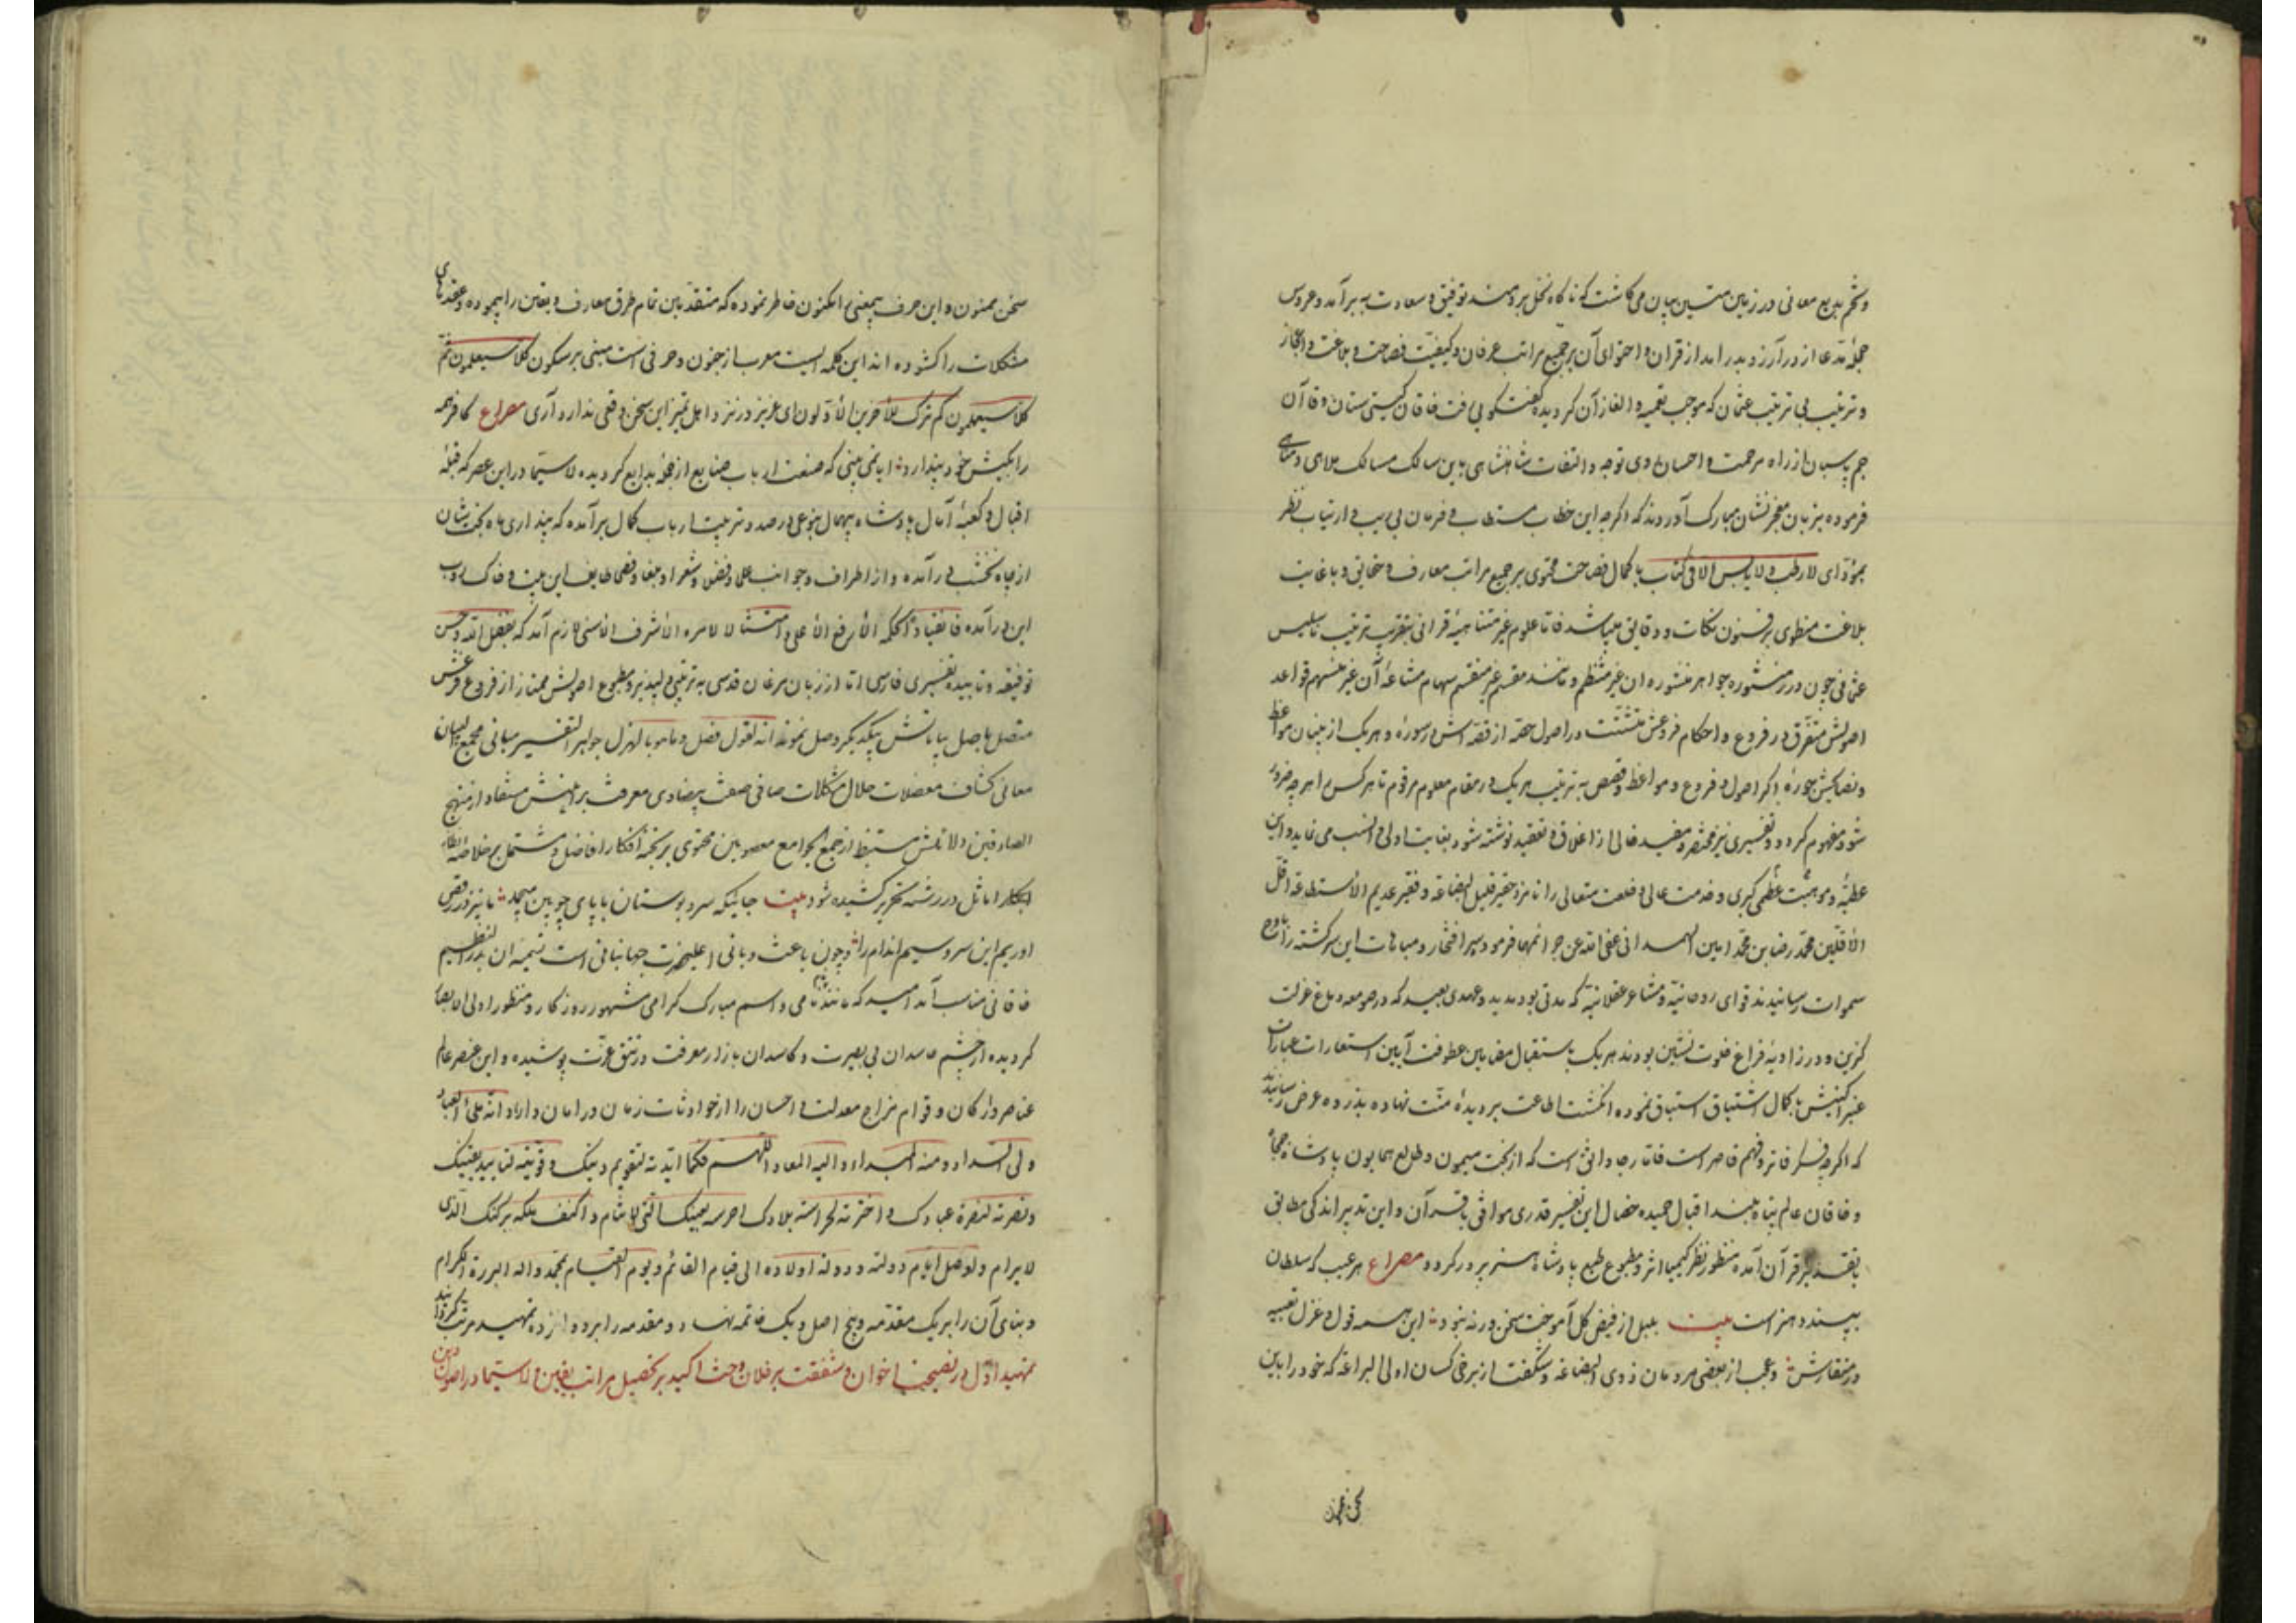 و تخم بدیع معانی در زمین متین بیان می کاشت که ناگاه نخل برومند توفیق و سعادت به بر آمد و عروس
حجلهٔ مدعا از در آرزو بدر آمد از قران و احتوای آن بر جمیع مراتب عرفان و کیفیت فصاحت و بلاغت و اعجاز
و ترتیب بی ترتیب عثمان که موجب تعمیه و الغاز آن گردیده گفتگو می رفت خاقان گیتی ستان و قاآن
جم پاسبان از راه مرحمت و احسان روی توجه و التفات شاهنشاهی باین سالک مسالک
فرموده بزبان معجز نشان مبارک آوردند که اگرچه این خطاب مستطاب و فرمان بی ریب و ارتیاب نظر
بمؤدای لا رطب و لا یابس الا فی کتاب با کمال فصاحت محتوی بر جمیع مراتب معارف و حقایق و با غایت
بلاغت منطوی بر فنون نکات و دقایق میباشد فاما علوم غیر متناهیهٔ قرانی بتقریب ترتیب ناسلیس
عثمانی چون درر منثوره و جواهر منشوره ان غیر منتظم و مانند مقسم غیر منقسم سهام مشاعهٔ آن غیر منسهم قواعد
اصولش متفرق در فروع و احکام فروعش متشتت در اصول حصهٔ از قصه اش در سورهٔ و هر یک از بنیان مواعظ
و نصایحش بصورهٔ اگر اصول و فروع و مواعظ و قصص به ترتیب هر یک در مقام معلوم مرقوم تا هر کس را هرچه ضرور
شود مفهوم گردد و تفسیری نیز مختصر و مفید خالی از اغلاق و تعقید نوشته شود بغایت اولی و انسب می نماید و این
عطیّه و موهبت عظمی کبری و خدمت عالی و خلعت متعالی را نامزد حقیر قلیل البضاعه و فقیر عدیم الاستطاعه اقل
الاقلین محمد رضا بن محمد امین الهمدانی عفی الله عن جرائمهما فرمود سر افتخار و مباهات این سرگشته را باوج
سموات رسانیدند قوای روحانیّه و مشاعر عقلانیّه که مدتی بود مدید و عهدی بعید که در صومعه دماغ عزلت
گزین و در زاویهٔ فراغ خلوت نشین بودند هر یک باستقبال مضامین عطوفت آیین استعارات عبارات
عنبر آگینش با کمال اشتیاق استباق نموده انگشت اطاعت بر دیدهٔ منت نهاده بذروه عرض رسانیدند
که اگرچه فکر فاتر و فهم قاصر است فاما رجا واثق است که از بخت میمون و طالع همایون پادشاه جمجاه
و خاقان عالم پناه بلند اقبال حمیده خصال این تفسیر قدری موافق با قرآن و این تدبیر اندکی مطابق
با تقدیر قرآن آمده منظور نظر کیمیا اثر و مطبوع طبع پادشاه هنر پرور گردد مصراع هر عیب که سلطان
بپسندد هنر است بیت بلبل از فیض گل آموخت سخن ور نه نبود این همه قول و غزل تعبیه
در منقارش و عجب از بعضی مردمان ذوی البضاعه و شگفت از برخی کسان اولی البراعة که خود را باین
سخن ممنون و این حرف بیمعنی را مکنون خاطر نموده که متقدمین تمام طرق معارف و یقین را پیموده و عقدهای
مشکلات را گشوده اند این کلمه ایست معرب از جنون و حرفی است مبنی بر سکون کلا سیعلمون ثم
کلا سیعلمون کم ترک للآخرین الاولون ای عزیز در نزد اهل تمیز این سخن وقعی ندارد آری مصراع کافر همه
را بکیش خود پندارد ایا نمی بینی که صنعت ارباب صنایع از جملهٔ بدایع گردیده لا سیّما در این عصر که قبلهٔ
اقبال و کعبهٔ آمال پادشاه بیهمال بنوعی در صدد تربیت ارباب کمال بر آمده که پنداری ماه بخت شان
از چاه نخشب در آمده و از اطراف و جوانب علما و فضلا و شعرا و بلغا و فصحا طایف این بیت و خاک روب
این در آمده فانقیادا لحکمه الارفع الاعلی و امتثالا لامره الاشرف الاسنی لازم آمد که بفضل الله و حسن
توفیقه و تاییده تفسیری فارسی اما از زبان مرغان قدسی به ترتیبی دلپذیر و مطبوع اصولش ممتاز از فروع فرعش
متصل باصل بیاناتش بیکدیگر وصل نموده انه لقول فصل و ما هو بالهزل جواهر التفسیر مبانی مجمع البیان
معانی کشاف معضلات حلال مشکلات صافی صفت بیضاوی معرفت براهینش مستفاد از منهج
الصادقین دلائلش مستنبط از جمع الجوامع معصومین محتوی بر نخبهٔ افکار افاضل و مشتمل بر خلاصهٔ انظار
ابکار اماثل در رشته تحریر کشیده شود بیت جائیکه سرو بوستان با پای چوبین میچمد ما نیز در رقص
اوریم این سرو سیم اندام را و چون باعث و بانی اعلیحضرت جهانبانی است تسمیه ان بدر النظیم
خاقانی مناسب آمد امید که مانند نام نامی و اسم مبارک گرامی مشهور روزگار و منظور اولی الابصار
گردیده از چشم حاسدان بی بصیرت و کاسدان بازار معرفت در تتق عزت پوشیده و این عنصر عالم
عناصر و ارکان و قوام مزاج معدلت و احسان را از حوادثات زمان در امان دارد انه ملهم العباد
ولی السداد و منه المبداء و الیه المعاد اللهم فکما ایدته لتقویم دینک و وفقته لتایید یقینک
و نصرته لنصرة عبادک و اخترته لحراسة بلادک احرسه بعینک التی لا تنام و اکنف ملکه برکنک الذی
لا یرام و اوصل ایام دولته و دولة اولاده الی قیام القائم و یوم القیام بمحمد و اله البررة الکرام
و بنای آن را بر یک مقدمه و پنج اصل و یک خاتمه نهاد و مقدمه را بر دوازده تمهید مرتب گردانید
تمهید اوّل در نصیحت اخوان و شفقت بر خلان و حث اکید بر تحصیل مراتب یقین لا سیّما در اصول دین